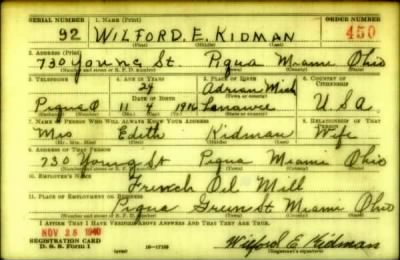 SERIAL NUMBER 1. NAME (Print) ORDER NUMBER
92 WILFORD. E. KIDMAN 450
(First) (Middle) (Last)
2. ADDRESS (Print)
730 Young St. Piqua Miami Ohio
(Number and street or R. F. D. number) (Town) (County) (State)
3. TELEPHONE 4. AGE IN YEARS 5. PLACE OF BIRTH 6. COUNTRY OF CITIZENSHIP
24 Adrian Mich
DATE OF BIRTH
Piqua O 11 4 1916 Lenawee U.S.A.
7. NAME OF PERSON WHO WILL ALWAYS KNOW YOUR ADDRESS 8. RELATIONSHIP OF THAT PERSON
Mrs Edith Kidman Wife
(Mr., Mrs., Miss) (First) (Middle) (Last)
9. ADDRESS OF THAT PERSON
730 Young St Piqua Miami Ohio
(Number and street or R. F. D. number) (Town) (County) (State)
10. EMPLOYER'S NAME
French Oil Mill
11. PLACE OF EMPLOYMENT OR BUSINESS
Piqua Green St Miami Ohio
(Number and street or R. F. D. number) (Town) (County) (State)
I AFFIRM THAT I HAVE VERIFIED ABOVE ANSWERS AND THAT THEY ARE TRUE.
NOV 28 1940
REGISTRATION CARD
D. S. S. Form 1 (over) 16-17105 Wilford E. Kidman
(Registrant's signature)